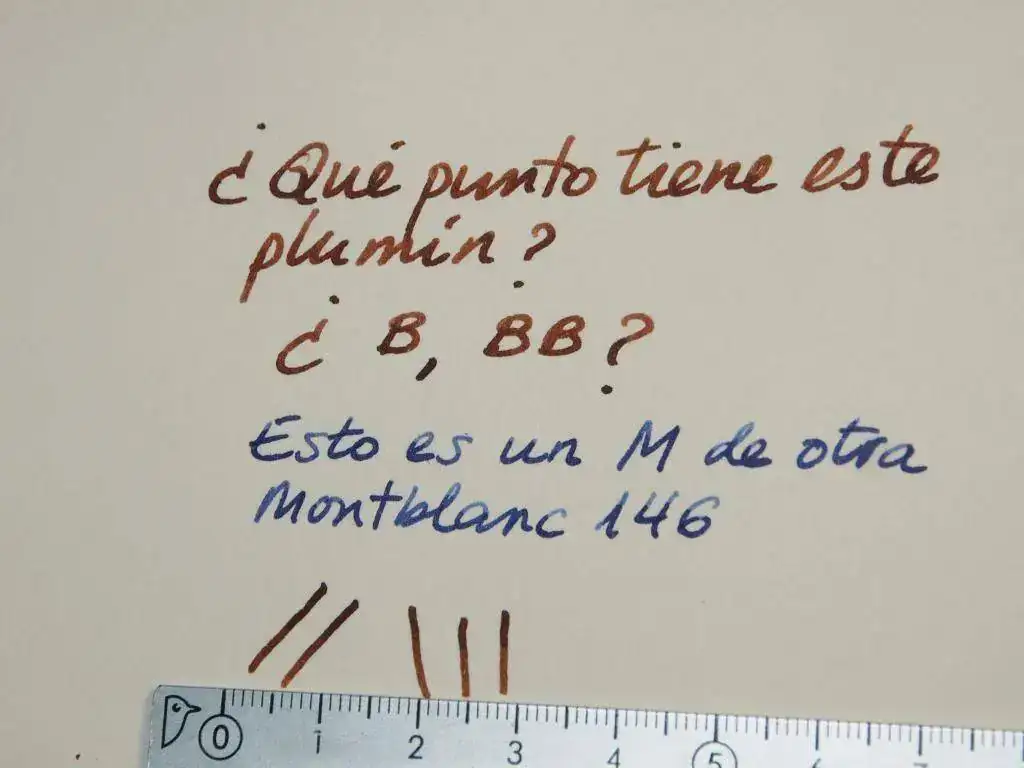 ¿Qué punto tiene este
plumín?
¿B, BB?
Esto es un M de otra
Montblanc 146
0 1 2 3 4 5 6